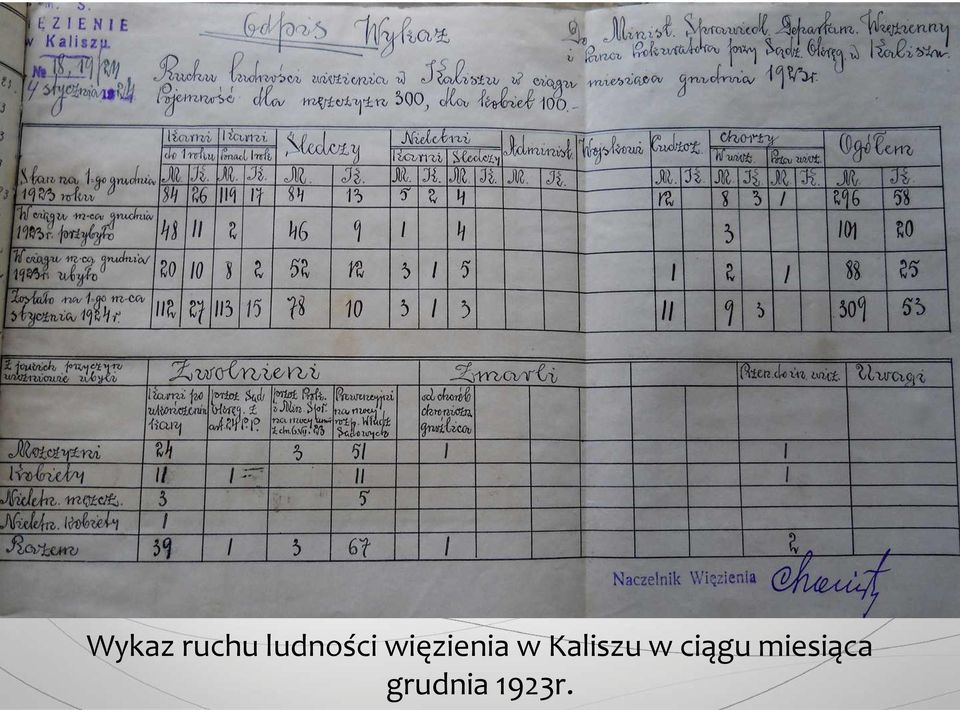 M. S.
WIĘZIENIE
w Kaliszu.
№ 18,19/24
4 stycznia 1924
Odpis Wykaz
Do Minist. Sprawiedl. Departam. Więzienny
i Pana Prokuratora przy Sądz. Okręg. w Kaliszu.
Ruchu ludności więzienia w Kaliszu w ciągu miesiąca grudnia 1923r.
Pojemność dla mężczyzn 300, dla kobiet 100.-
Karni do 1 roku Karni Ponad 1 rok Śledczy Nieletni Administ. Wojskowi Cudzoz. Chorzy Ogółem
Karni Śledczy W więz. Poza więz.
M. K. M. K. M. K. M. K. M. K. M. K. M. K. M. K. M. K. M. K.
Stan na 1-go grudnia 1923 roku 84 26 119 17 84 13 5 2 4 12 8 3 1 296 58
W ciągu m-ca grudnia 1923r. przybyło 48 11 2 46 9 1 4 3 101 20
W ciągu m-ca grudnia 1923r. ubyło 20 10 8 2 52 12 3 1 5 1 2 1 88 25
Zostało na 1-go m-ca stycznia 1924r. 112 27 113 15 78 10 3 1 3 11 9 3 309 53
Z jakich przyczyn więźniowie ubyli Zwolnieni Zmarli Przen. do in. więz. Uwagi
Karni po ukończeniu kary
przez Sąd Okręg. z art. 24 P.P.
przez Prok. i Min. Spr. na mocy
Prewencyjni na mocy rozp. Władz Sądowych
od chorób chroniczn. gruźlica
Mężczyźni 24 3 51 1 1
Kobiety 11 1 11 1
Nieletn. mężcz. 3 5
Nieletn. Kobiety 1
Razem 39 1 3 67 1 2
Naczelnik Więzienia
Wykaz ruchu ludności więzienia w Kaliszu w ciągu miesiąca
grudnia 1923r.